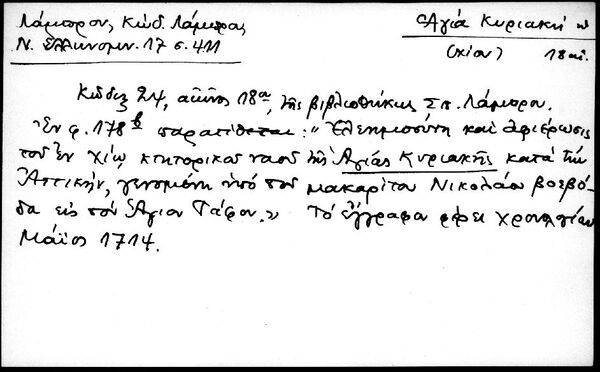 Λάμπρου, Κώδ. Λάμπρας
Ν. Ἑλληνομν. 17 σ. 411
Ἁγία Κυριακή
(Χίου) 18 αἰ.
Κῶδιξ 24, αἰῶνος 18ου, τῆς βιβλιοθήκης Σπ. Λάμπρου.
Ἐν φ. 178β παρατίθεται: "Ἐλεημοσύνη καὶ ἀφιέρωσις
τοῦ ἐν Χίῳ κτητορικοῦ ναοῦ τῆς Ἁγίας Κυριακῆς κατὰ τὴν
Ἀττικήν, γενομένη ὑπὸ τοῦ μακαρίτου Νικολάου βοεβό-
δα εἰς τὸν Ἅγιον Τάφον." Τὸ ἔγγραφο φέρει χρονολογίαν
Μάϊος 1714.